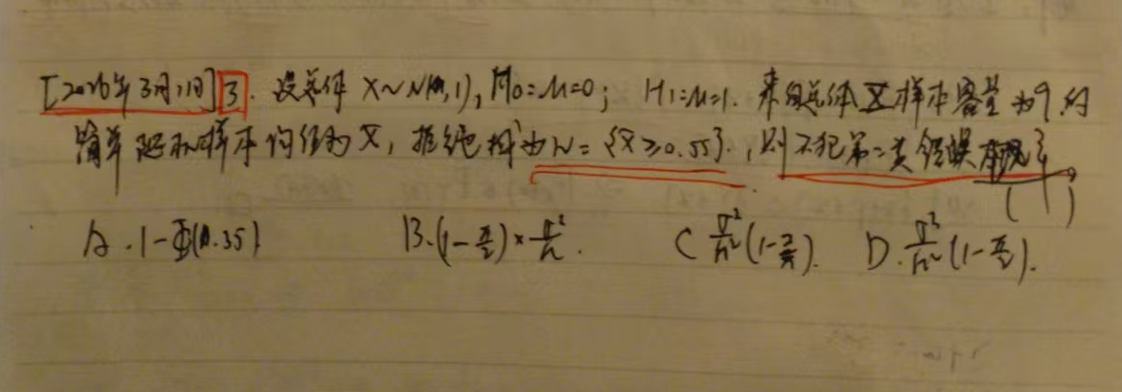 [2026年3月1日]3. 设总体 X~N(μ,1), H₀:μ=0; H₁:μ=1. 来自总体X样本容量为9的
简单随机样本均值为X̄, 拒绝域为W={X̄≥0.55}, 则不犯第二类错误概率
( )
A. 1-Φ(0.35) B.(1-π/2)×σ²/n. C σ²/n²(1-2/π). D. σ²/n²(1-π/2).